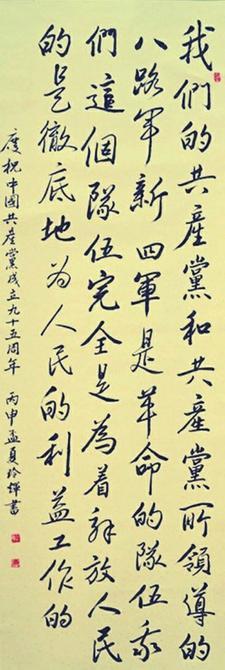 我們的共產黨和共產黨所領導的
八路軍新四軍是革命的隊伍我
們這個隊伍完全是為着解放人民
的是徹底地为人民的利益工作的
慶祝中國共產黨成立九十五周年 丙申孟夏玲書